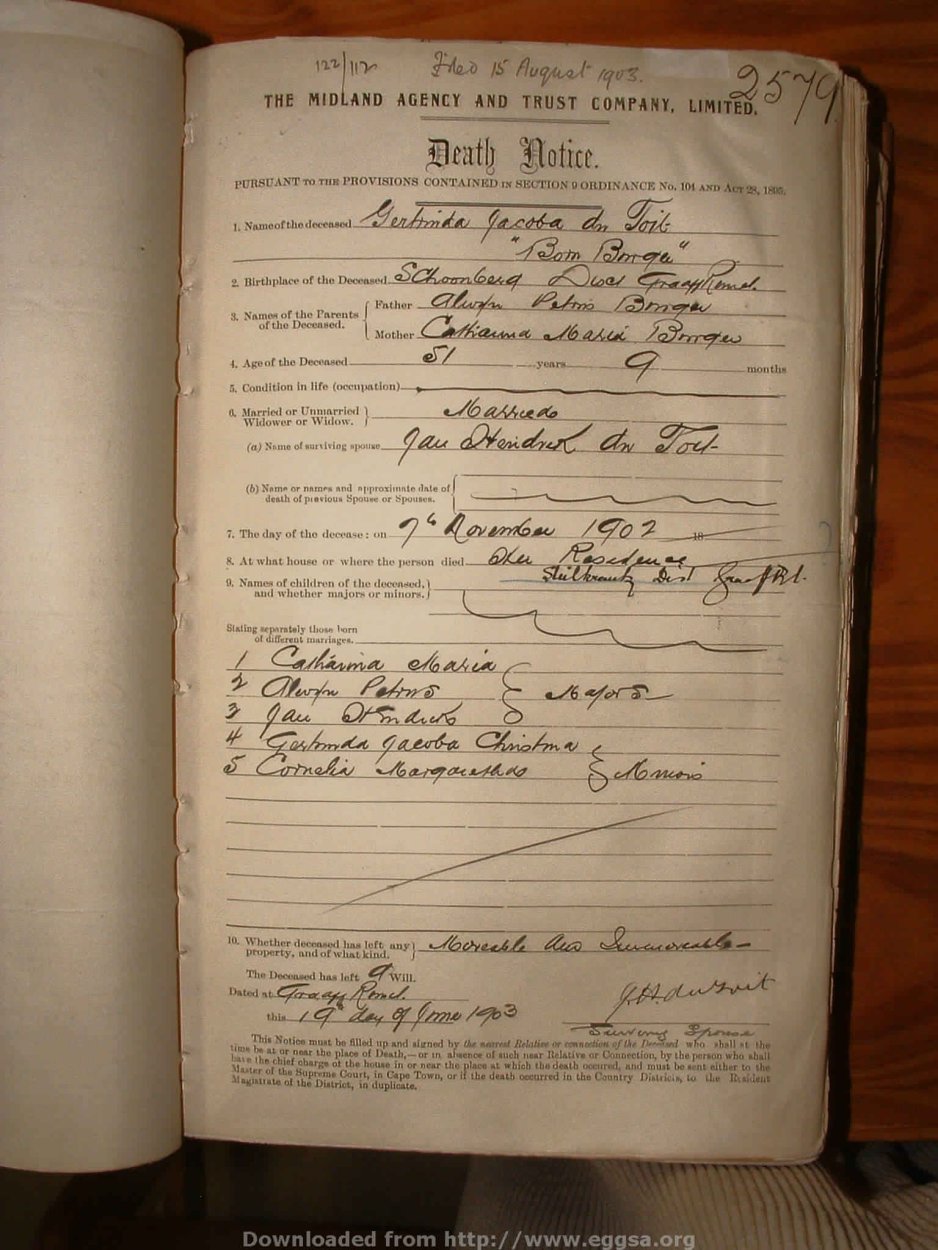 122/112 Filed 15 August 1903.
2579
THE MIDLAND AGENCY AND TRUST COMPANY, LIMITED.
Death Notice.
PURSUANT TO THE PROVISIONS CONTAINED IN SECTION 9 ORDINANCE No. 104 AND ACT 28, 1895.
1. Name of the deceased Gertruida Jacoba du Toit
"Born Burger"
2. Birthplace of the Deceased Schoonberg Dist Graaff Reinet
3. Names of the Parents of the Deceased. Father Alwyn Petrus Burger
Mother Catharina Maria Burger
4. Age of the Deceased 51 years 9 months
5. Condition in life (occupation)
6. Married or Unmarried Widower or Widow. Married
(a) Name of surviving spouse Jan Hendrik du Toit
(b) Name or names and approximate date of
death of previous Spouse or Spouses.
7. The day of the decease: on 7th November 1902 18
8. At what house or where the person died Residence
Dist Graaff Rt.
9. Names of children of the deceased,
and whether majors or minors.
Stating separately those born
of different marriages.
1 Catharina Maria
2 Alwyn Petrus Majors
3 Jan Hendrik
4 Gertruida Jacoba Christina
5 Cornelia Margaretha Minors
10. Whether deceased has left any
property, and of what kind. Moveable and Immoveable
The Deceased has left a Will.
Dated at Graaff Reinet
this 19th day of June 1903
J. H. du Toit
Surviving Spouse
This Notice must be filled up and signed by the nearest Relative or connection of the Deceased who shall at the
time be at or near the place of Death,—or in absence of such near Relative or Connection, by the person who shall
have the chief charge of the house in or near the place at which the death occured, and must be sent either to the
Master of the Supreme Court, in Cape Town, or if the death occurred in the Country Districts, to the Resident
Magistrate of the District, in duplicate.
Downloaded from http://www.eggsa.org